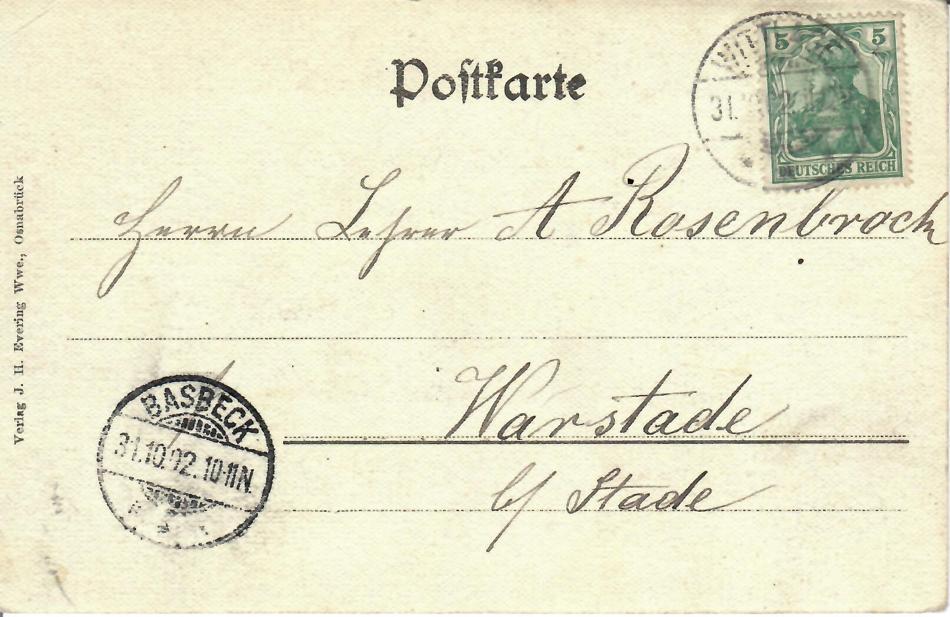 Postkarte
5 5
DEUTSCHES REICH
31.
Herrn Lehrer A Rosenbrock
Warstade
b/ Stade
BASBECK
31.10.02.10-11N.
Verlag J. H. Evering Wwe., Osnabrück